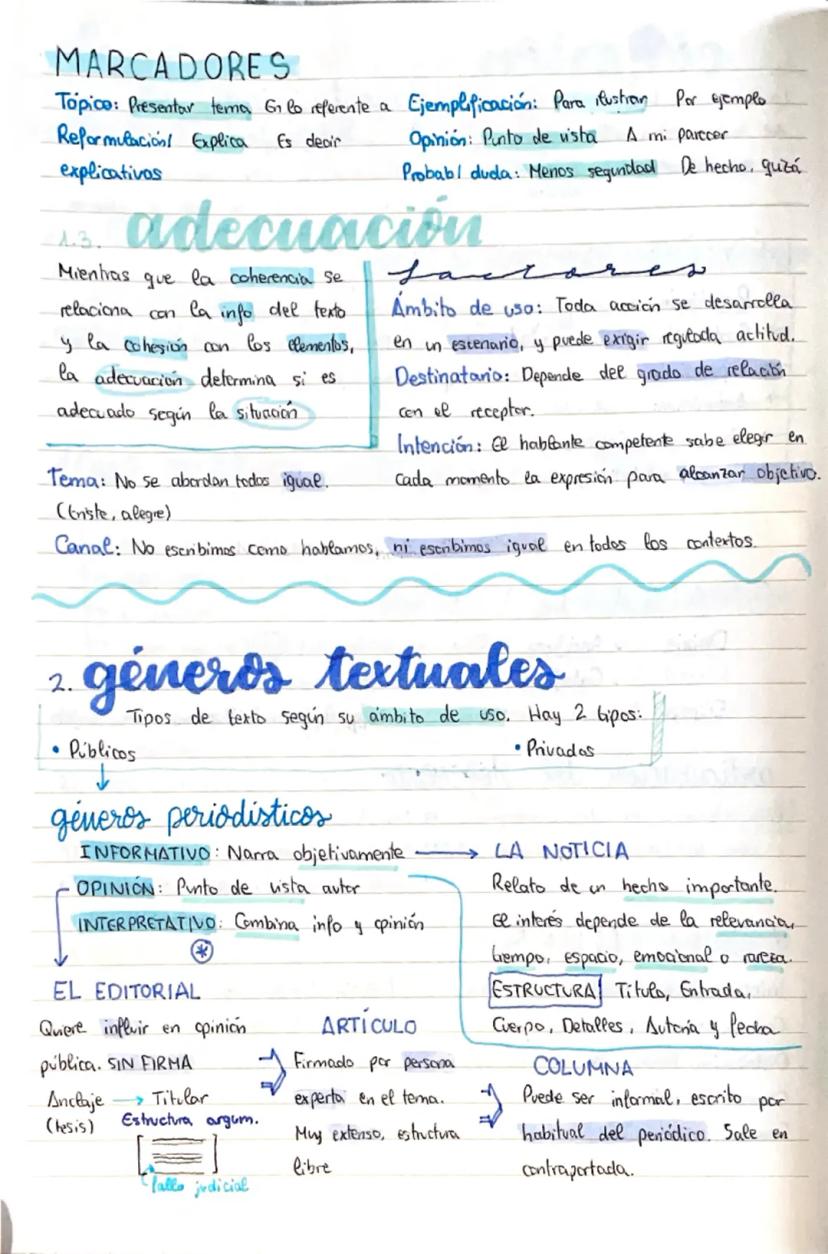 MARCADORES
Tópico: Presentar tema En lo referente a
Reformulación/ Explica Es decir
explicativos
Ejemplificación: Para ilustrar Por ejemplo
Opinión: Punto de vista A mi parecer
Probabl duda: Menos seguridad De hecho, quizá
1.3. adecuación
Mientras que la coherencia se
relaciona con la info del texto
y la cohesión con los elementos,
la adecuación determina si es
adecuado según la situación
factores
Ámbito de uso: Toda acción se desarrolla
en un escenario, y puede exigir regulada actitud.
Destinatario: Depende del grado de relación
con el receptor.
Intención: El hablante competente sabe elegir en
cada momento la expresión para alcanzar objetivo.
Tema: No se abordan todos igual.
(triste, alegre)
Canal: No escribimos como hablamos, ni escribimos igual en todos los contextos.
2. géneros textuales
Tipos de texto según su ámbito de uso. Hay 2 tipos:
• Públicos • Privados
↓
géneros periodísticos
INFORMATIVO: Narra objetivamente → LA NOTICIA
OPINIÓN: Punto de vista autor
INTERPRETATIVO: Combina info y opinión
*
Relato de un hecho importante.
El interés depende de la relevancia,
tiempo, espacio, emocional o rareza.
ESTRUCTURA Título, Entrada,
Cuerpo, Detalles, Autoría y fecha
EL EDITORIAL
Quiere influir en opinión
pública. SIN FIRMA
Anclaje → Titular
(tesis) Estructura argum.
fallo judicial
ARTÍCULO
Firmado por persona
experta en el tema.
Muy extenso, estructura
libre
COLUMNA
Puede ser informal, escrito por
habitual del periódico. Sale en
contraportada.